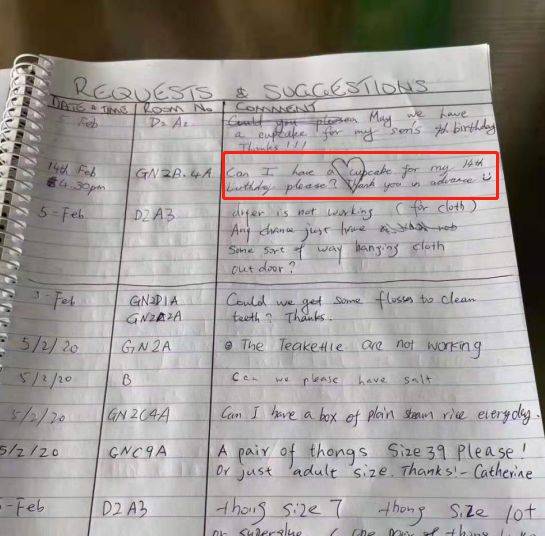 REQUESTS & SUGGESTIONS
DATE & TIME ROOM No COMMENT
5 Feb D2 A2 Could you please May we have
a cupcake for my son's birthday
Thanks!!!
14th Feb GN2B.4A Can I have a cupcake for my 14th
4.30pm birthday please? Thank you in advance
5-Feb D2A3 dryer is not working (for cloth)
Any chance just have
Some sort of way hanging cloth
out door?
5-Feb GN2D1A Could we get some flosses to clean
GN2A2A teeth? Thanks.
5/2/20 GN2A The Teakettle are not working
5/2/20 B Can we please have salt
5/2/20 GN2C4A Can I have a box of plain steam rice everyday.
5/2/20 GNC9A A pair of thongs Size 39 Please!
Or just adult size. Thanks! - Catherine
5-Feb D2A3 thong size 7 thong size 10+
or superglue (one pair of thong